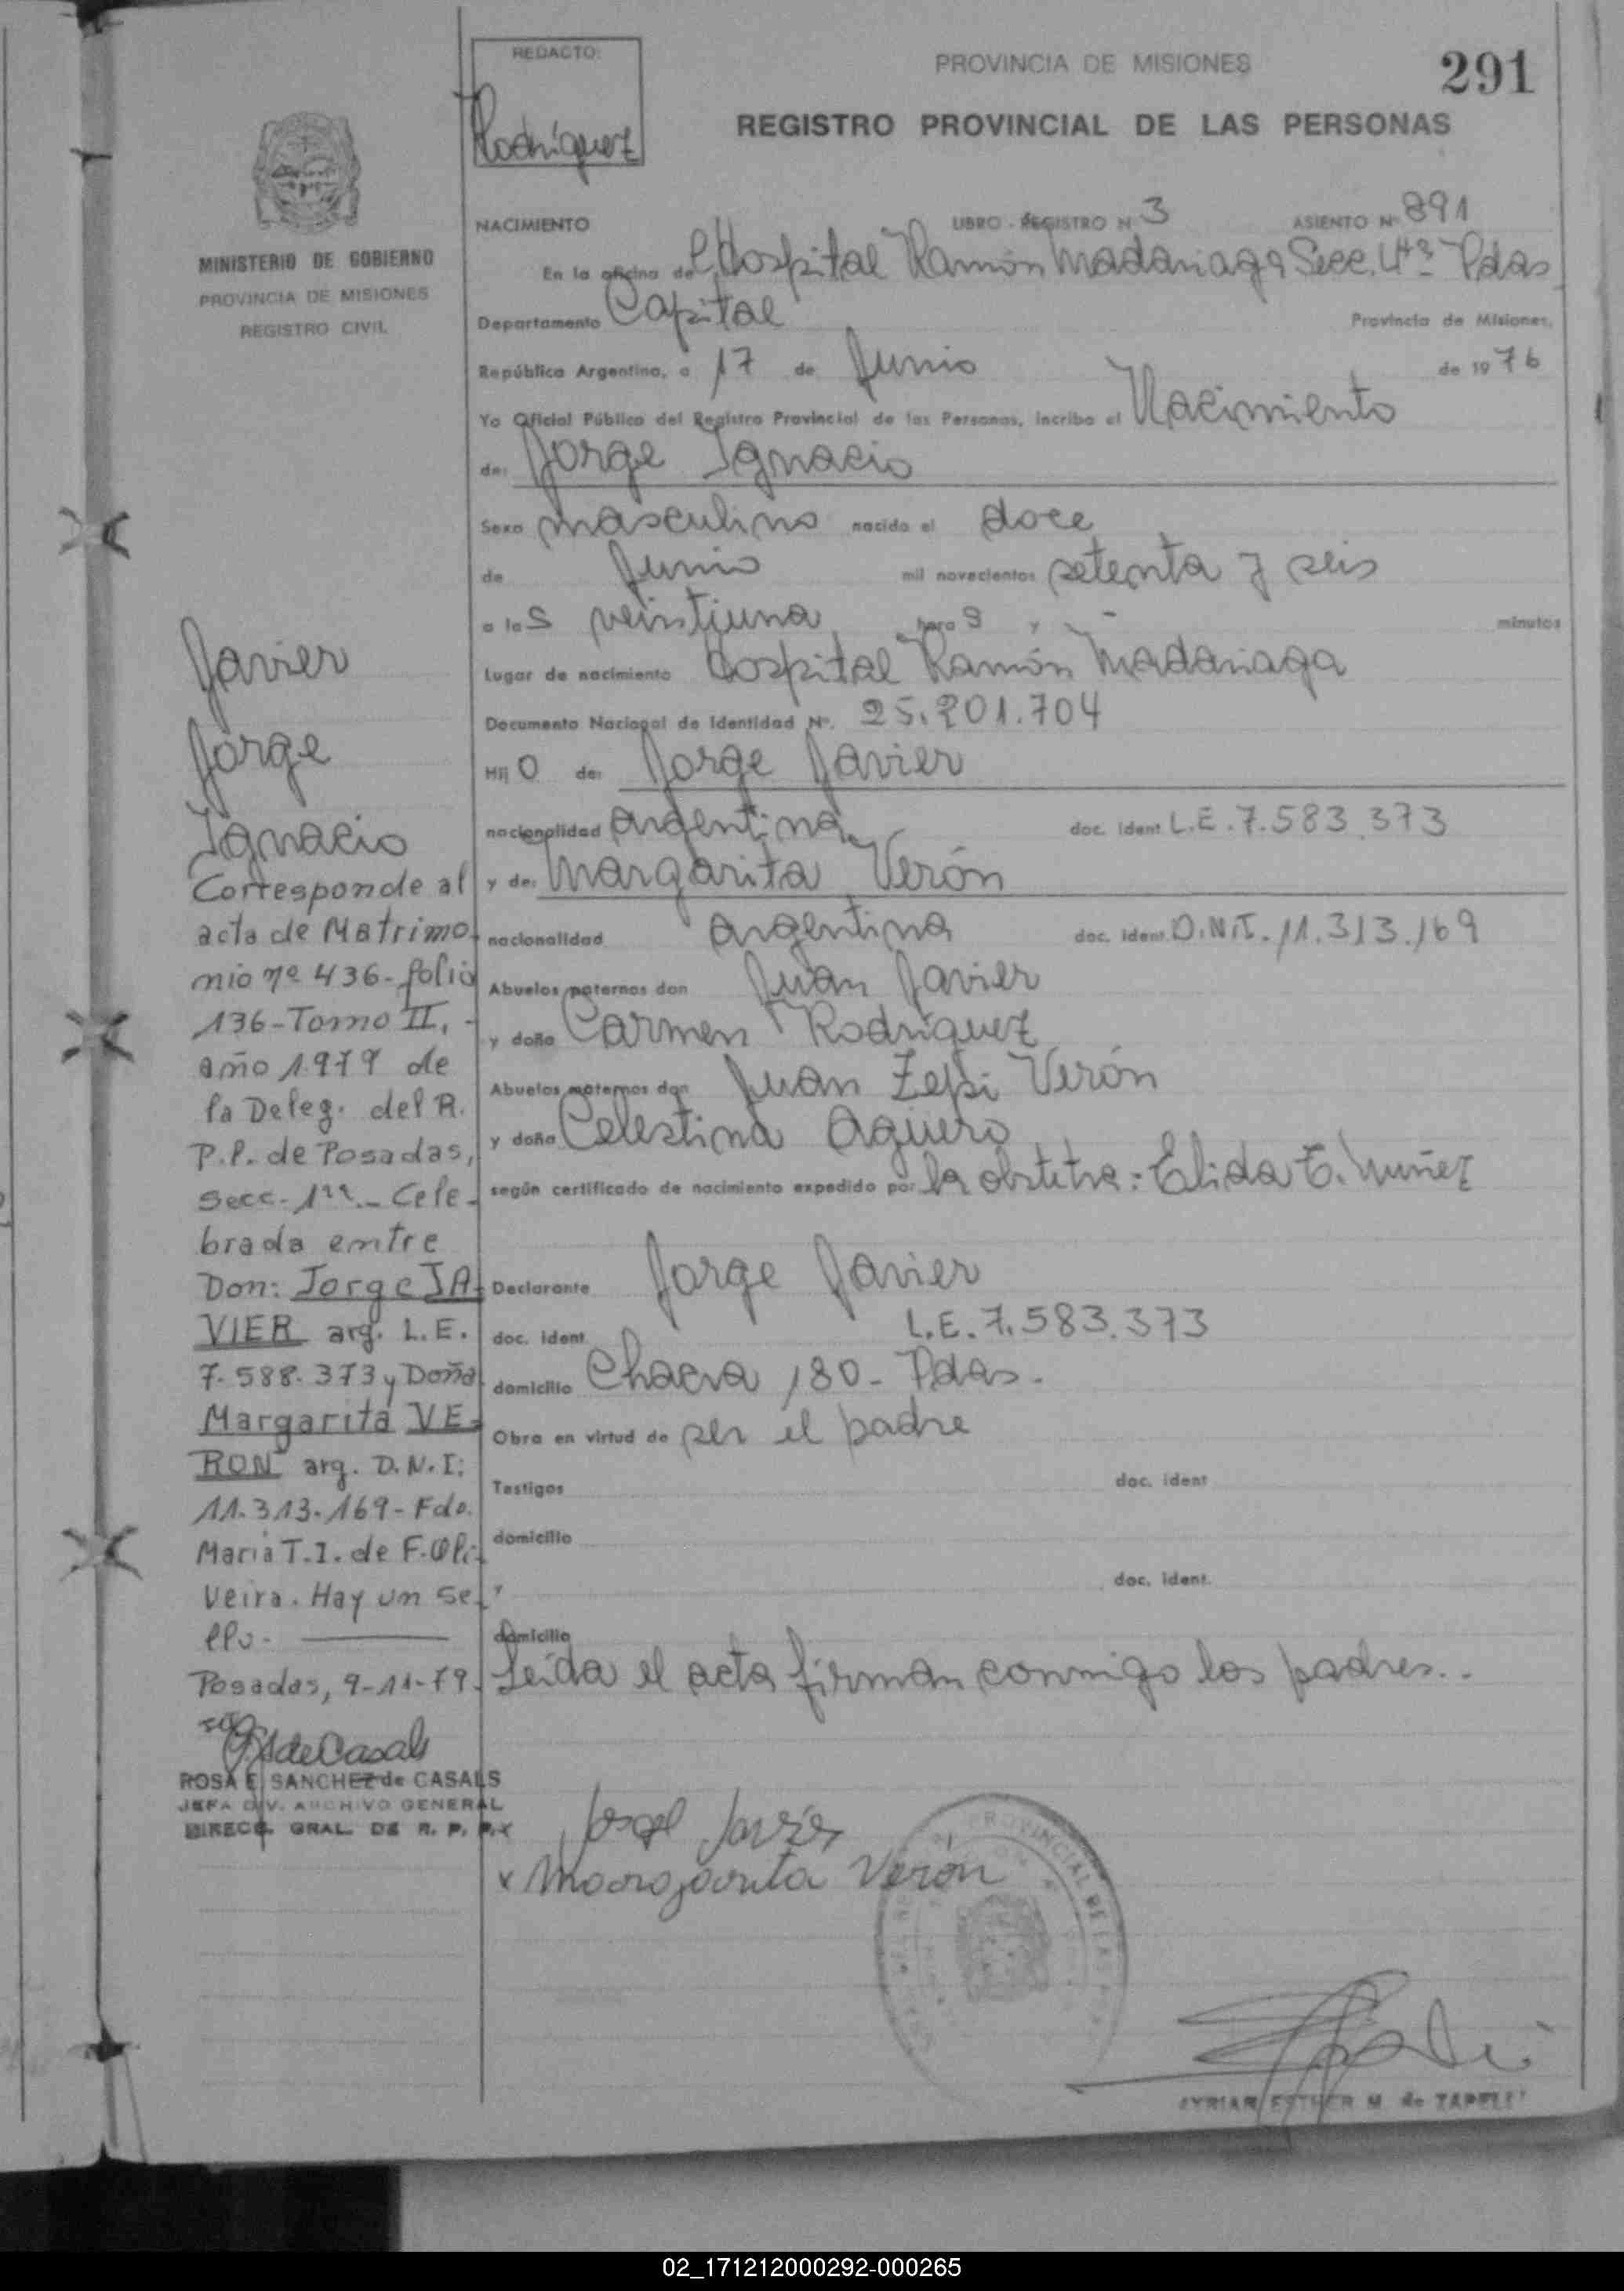 REDACTO:
Rodríguez
PROVINCIA DE MISIONES
291
REGISTRO PROVINCIAL DE LAS PERSONAS
MINISTERIO DE GOBIERNO
PROVINCIA DE MISIONES
REGISTRO CIVIL
NACIMIENTO LIBRO - REGISTRO N. 3 ASIENTO Nº 891
En la oficina del Hospital Ramón Madariaga Secc. 4ta Pdas
Departamento Capital Provincia de Misiones,
República Argentina, a 17 de Junio de 1976
Yo Oficial Público del Registro Provincial de las Personas, incribo el Nacimiento
de: Jorge Ignacio
Sexo masculino nacido el doce
de Junio mil novecientos setenta y seis
a las veintiuna horas y - minutos
Lugar de nacimiento Hospital Ramón Madariaga
Documento Nacional de Identidad Nº. 25.201.704
Hijo de: Jorge Javier
nacionalidad argentina doc. ident. L.E. 7.583.373
y de: Margarita Verón
nacionalidad argentina doc. ident. D.N.I. 11.313.169
Abuelos paternos don Juan Javier
y doña Carmen Rodríguez
Abuelos maternos don Juan Zepi Verón
y doña Celestina Aguero
según certificado de nacimiento expedido por la obstetra: Elida E. Nuñez
Declarante Jorge Javier
doc. ident. L.E. 7.583.373
domicilio Chacra 180 - Pdas.
Obra en virtud de ser el padre
Testigos doc. ident
domicilio
doc. ident.
domicilio
Leída el acta firman conmigo los padres..
Javier
Jorge
Ignacio
Corresponde al
acta de Matrimo
nio nº 436 - folio
136 - Tomo II, -
año 1979 de
la Deleg. del R.
P.P. de Posadas,
Secc. 1ra - Cele-
brada entre
Don: Jorge JA-
VIER arg. L.E.
7.588.373 y Doña
Margarita VE-
RON arg. D.N.I:
11.313.169 - Fdo.
María T.I. de F. Oli-
Veira. Hay un se-
llo.
Posadas, 9-11-79.
de Casals
ROSA E. SANCHEZ de CASALS
JEFA DIV. ARCHIVO GENERAL
DIRECC. GRAL. DE R. P. P.
Jorge Javier
x Margarita Verón
PROVINCIAL DE LAS
MYRIAN ESTHER M. de ZAPELLI
02_171212000292-000265